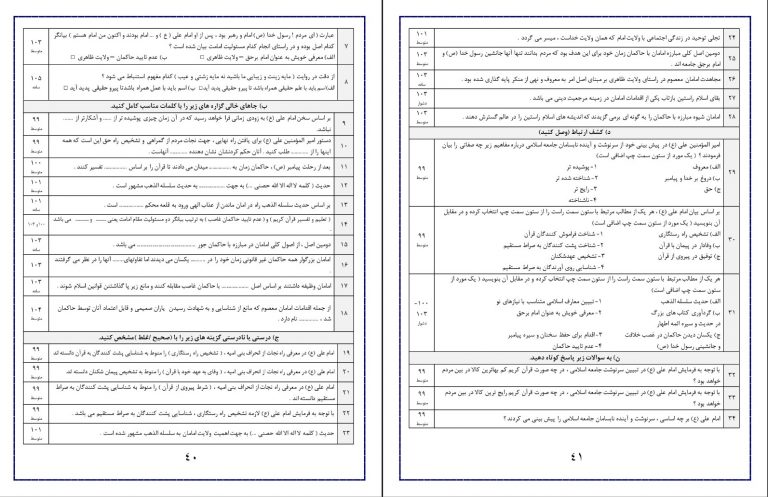 ۷ عبارت (ای مردم ! رسول خدا (ص) امام و رهبر بود ، پس از او امام علی ( ع ) و ... امام بودند و اکنون من امام هستم ) بیانگر ۱۰۳
کدام اصل بوده و در راستای انجام کدام مسئولیت امامت بیان شده است ؟ متوسط
الف) معرفی خویش به عنوان امام برحق = ولایت ظاهری □ ب) عدم تایید حاکمان = ولایت ظاهری □
۸ از دقت در روایت ( مایه زینت و زیبایی ما باشید نه مایه زشتی و عیب ) کدام مفهوم استنباط می شود ؟ ۱۰۵
الف) اسم باید با علم حقیقی همراه باشد تا پیرو حقیقی پدید آید □ ب) اسم باید با عمل همراه باشد تا پیرو حقیقی پدید آید □ ساده
ب) جاهای خالی گزاره های زیر را با کلمات مناسب کامل کنید.
۹ بر اساس سخن امام علی (ع) به زودی زمانی فرا خواهد رسید که در آن زمان چیزی پوشیده تر از ..... و آشکارتر از ...... ۹۹
نباشد. ساده
۱۰ دستور امیر المؤمنین علی (ع) برای یافتن راه نهایی ، جهت نجات مردم از گمراهی و تشخیص راه حق این است که همه ۹۹
اینها را از ........... طلب کنید . آنان حکم کردنشان نشان دهنده ........... آنهاست . متوسط
۱۱ بعد از رحلت پیامبر (ص) ، حاکمان زمان به ............ میدان می دادند تا قرآن را بر اساس ............... تفسیر کنند . ۱۰۰
متوسط
۱۲ حدیث ( کلمة لا اله الا الله حصنی ...) به جهت ................ به حدیث سلسلة الذهب مشهور است . ۱۰۱
متوسط
۱۳ بر اساس حدیث سلسله الذهب راه در امان ماندن از عذاب الهی ورود به قلعه محکم ............... است . ۱۰۱
۱۴ ( تعلیم و تفسیر قرآن کریم ) و ( عدم تایید حاکمان غاصب ) به ترتیب بیانگر دو مسئولیت مقام امامت یعنی ....... و ........ می باشد ۱۰۰و۱۰۳
.
۱۵ دومین اصل ، از اصول کلی امامان در مبارزه با حاکمان جور ............................ می باشد . ۱۰۳
متوسط
۱۶ امامان بزرگوار همه حاکمان غیر قانونی زمان خود را در ........ یکسان می دیدند اما تفاوتهای........ آنها را در نظر می گرفتند ۱۰۳
.
۱۷ امامان وظیفه داشتند بر اساس اصل ................ با حاکمان غاصب مقابله کنند و مانع زیر پا گذاشتن قوانین اسلام شوند. ۱۰۳
ساده
۱۸ از جمله اقدامات امامان معصوم که مانع از شناسایی و به شهادت رسیدن یاران صمیمی و قابل اعتماد آنان توسط حاکمان ۱۰۴
شد ، ............. نام دارد . متوسط
ج) درستی یا نادرستی گزینه های زیر را با (صحیح /غلط )مشخص کنید.
۱۹ امام علی (ع) در معرفی راه نجات از انحراف بنی امیه ، ( تشخیص راه رستگاری ) را منوط به شناسایی پشت کنندگان به قرآن دانسته اند ۹۹
۲۰ امام علی (ع) در معرفی راه نجات از انحراف بنی امیه ، ( وفای به عهد خود با قرآن ) را منوط به تشخیص پیمان شکنان دانسته اند ۹۹
۲۱ امام علی (ع) در معرفی راه نجات از انحراف بنی امیه ، ( شرط پیروی از قرآن ) را منوط به شناسایی پشت کنندگان به صراط ۹۹
مستقیم دانسته اند . متوسط
۲۲ با توجه به فرمایش امام علی (ع) لازمه تشخیص راه رستگاری ، شناسایی پشت کنندگان به صراط مستقیم می باشد . ۹۹
متوسط
۲۳ حدیث ( کلمه لا اله الا الله حصنی ...) به جهت اهمیت ولایت امامان به سلسله الذهب مشهور شده است . ۱۰۱
متوسط
۴۰
۲۴ تجلی توحید در زندگی اجتماعی با ولایت امام که همان ولایت خداست ، میسر می گردد . ۱۰۱
متوسط
۲۵ دومین اصل کلی مبارزه امامان با حاکمان زمان خود برای این هدف بود که مردم بدانند تنها آنها جانشین رسول خدا (ص) و ۱۰۳
امام برحق جامعه اند . متوسط
۲۶ مجاهدت امامان معصوم در راستای ولایت ظاهری بر مبنای اصل امر به معروف و نهی از منکر پایه گذاری شده بود . ۱۰۳
ساده
۲۷ بقای اسلام راستین بازتاب یکی از اقدامات امامان در زمینه مرجعیت دینی می باشد . ۱۰۳
دشوار
۲۸ امامان شیوه مبارزه با حاکمان را به گونه ای برمی گزیدند که اندیشه های اسلام راستین را در عالم گسترش دهند . ۱۰۳
متوسط
د) کشف ارتباط (وصل کنید)
۲۹ امیر المؤمنین علی (ع) در پیش بینی خود از سرنوشت و آینده نابسامان جامعه اسلامی درباره مفاهیم زیر چه صفاتی را بیان ۹۹
فرمودند؟ ( یک مورد از ستون سمت چپ اضافی است) متوسط
الف) معروف ۱- پوشیده تر
ب) دروغ بر خدا و پیامبر ۲- شناخته شده تر
ج) حق ۳- رایج تر
۴- ناشناخته
۳۰ بر اساس بیان امام علی (ع) ، هر یک از مطالب مرتبط با ستون سمت راست را از ستون سمت چپ انتخاب کرده و در مقابل ۹۹
آن بنویسید ( یک مورد از ستون سمت چپ اضافی است) متوسط
الف) تشخیص راه رستگاری ۱- شناخت فراموش کنندگان قرآن
ب) وفادار در پیمان با قرآن ۲- شناخت پشت کنندگان به صراط مستقیم
ج) توفیق در پیروی از قرآن ۳- تشخیص عهدشکنان
۴- شناسایی روی آورندگان به صراط مستقیم
۳۱ هر یک از مطالب مرتبط با ستون سمت راست را از ستون سمت چپ انتخاب کرده و در مقابل آن بنویسید ( یک مورد از ۱۰۰-
ستون سمت چپ اضافی است) ۱۰۳
الف) حدیث سلسله الذهب ۱- تبیین معارف اسلامی متناسب با نیازهای نو دشوار
ب) گردآوری کتاب های بزرگ ۲- معرفی خویش به عنوان امام برحق
در حدیث و سیره ائمه اطهار
ج) یکسان دیدن حاکمان در غصب خلافت ۳- اقدام برای حفظ سخنان و سیره پیامبر
و جانشینی رسول خدا (ص) ۴- عدم تایید حاکمان
ن) به سوالات زیر پاسخ کوتاه دهید.
۳۲ با توجه به فرمایش امام علی (ع) در تبیین سرنوشت جامعه اسلامی ، در چه صورت قرآن کریم کم بهاترین کالا در بین مردم ۹۹
خواهد بود ؟ متوسط
۳۳ با توجه به فرمایش امام علی (ع) در تبیین سرنوشت جامعه اسلامی ، در چه صورت قرآن کریم رایج ترین کالا در بین مردم ۹۹
خواهد بود ؟ متوسط
۳۴ امام علی (ع) بر چه اساسی ، سرنوشت و آینده نابسامان جامعه اسلامی را پیش بینی می کردند ؟ ۹۹
متوسط
۴۱